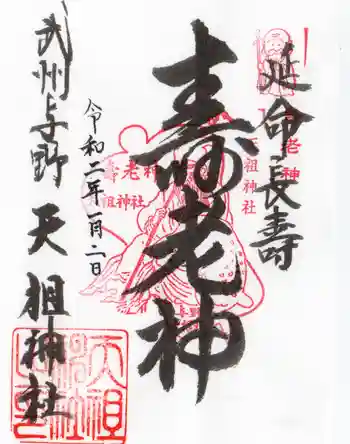 延命長寿
寿老神
寿老神
天祖神社
令和二年一月二日
武州与野
天祖神社
天祖神社